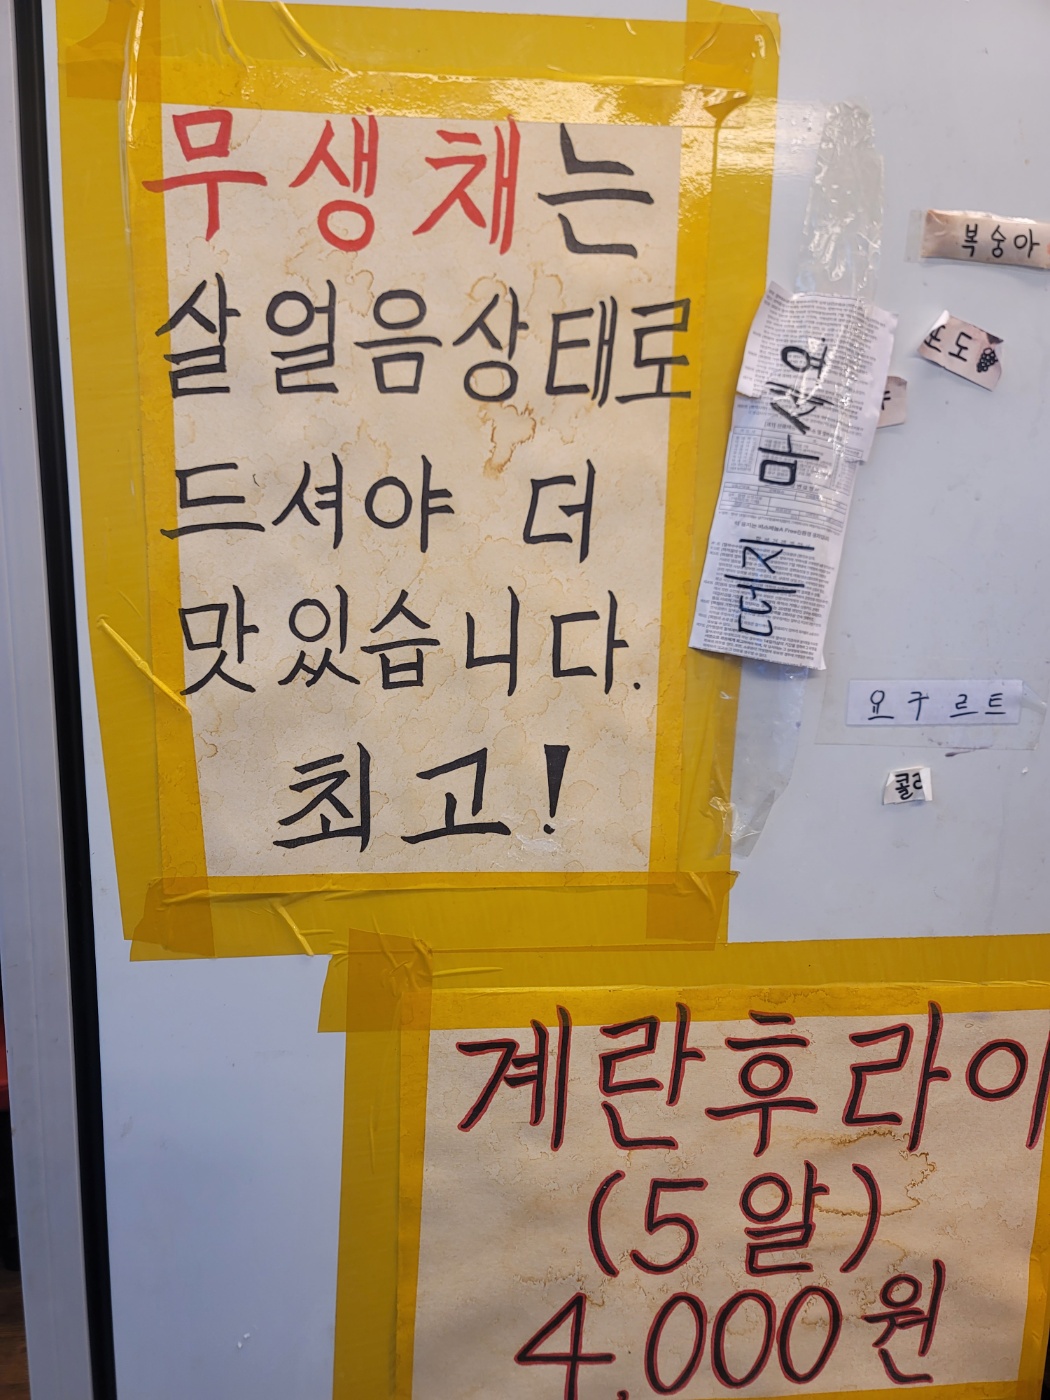 무생채는
살얼음상태로
드셔야 더
맛있습니다.
최고!
떼지 마세요.
복숭아
도
요구르트
콜라
계란후라이
(5알)
4,000원